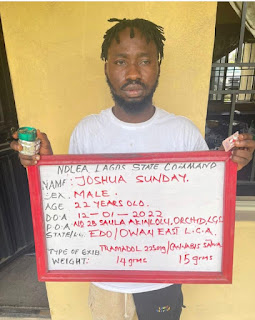 NDLEA LAGOS STATE COMMAND
NAME: JOSHUA SUNDAY.
SEX. MALE.
AGE 22 YEARS OLD.
D.O.A 12-01-2022
P.O.A: NO 2B SAULA AKINLOLU, ORCHID, LSG
STATE/LG. EDO/OWAN EAST L.G.A.
TYPE OF EXIB. TRAMADOL 225mg/CANNABIS SATIVA
WEIGHT: 14 grms 15 grms